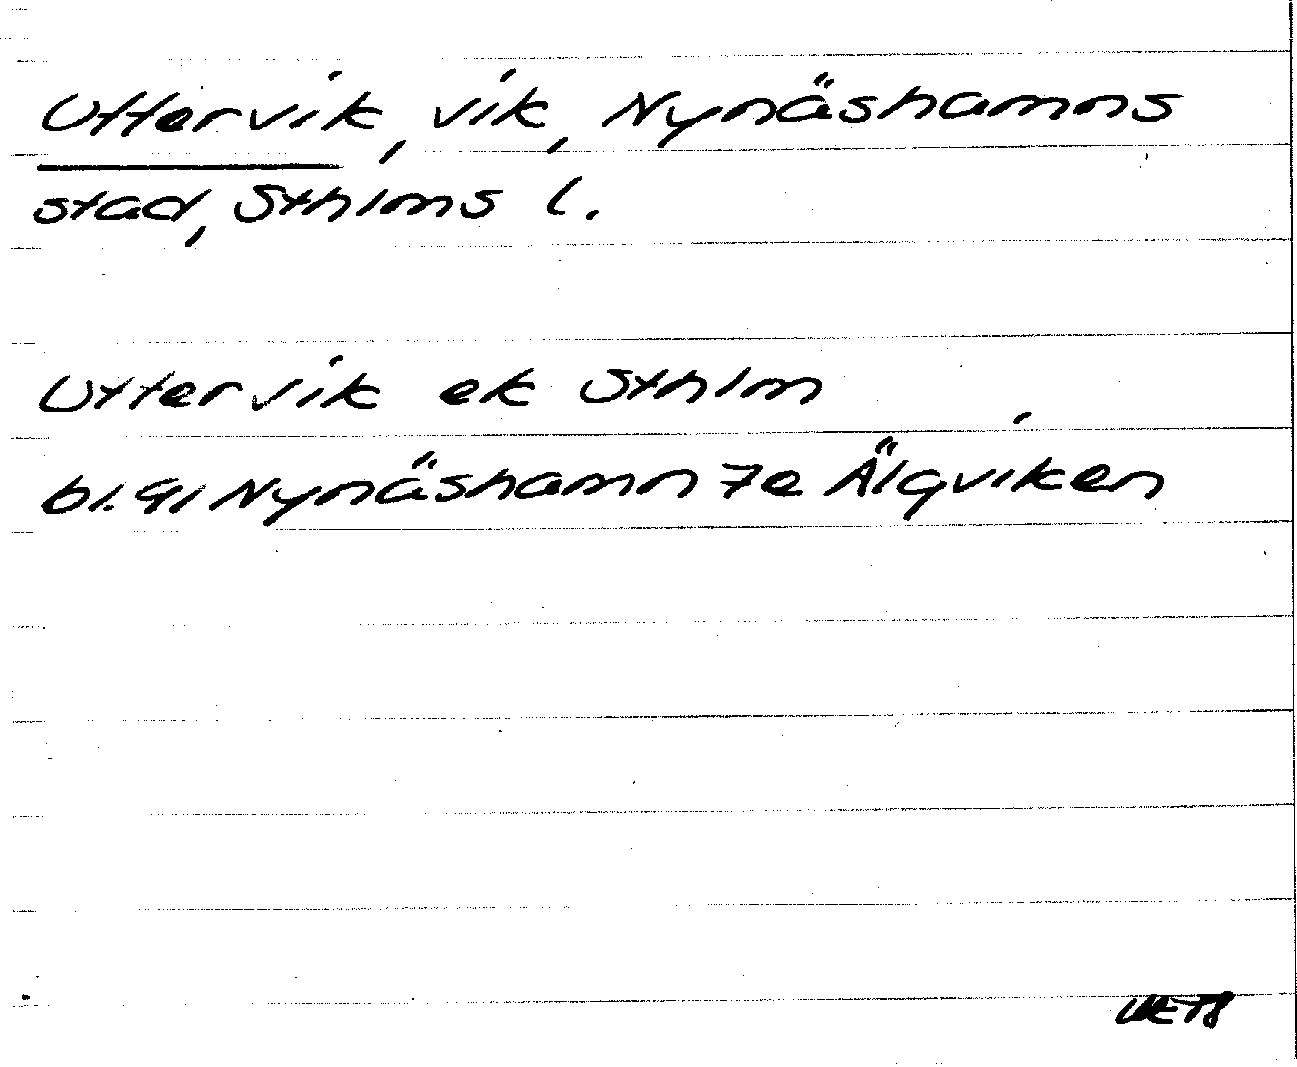 Uttervik, vik, Nynäshamns
stad, Sthlms l.
Uttervik ek Sthlm
bl. 91 Nynäshamn 7e Älgviken